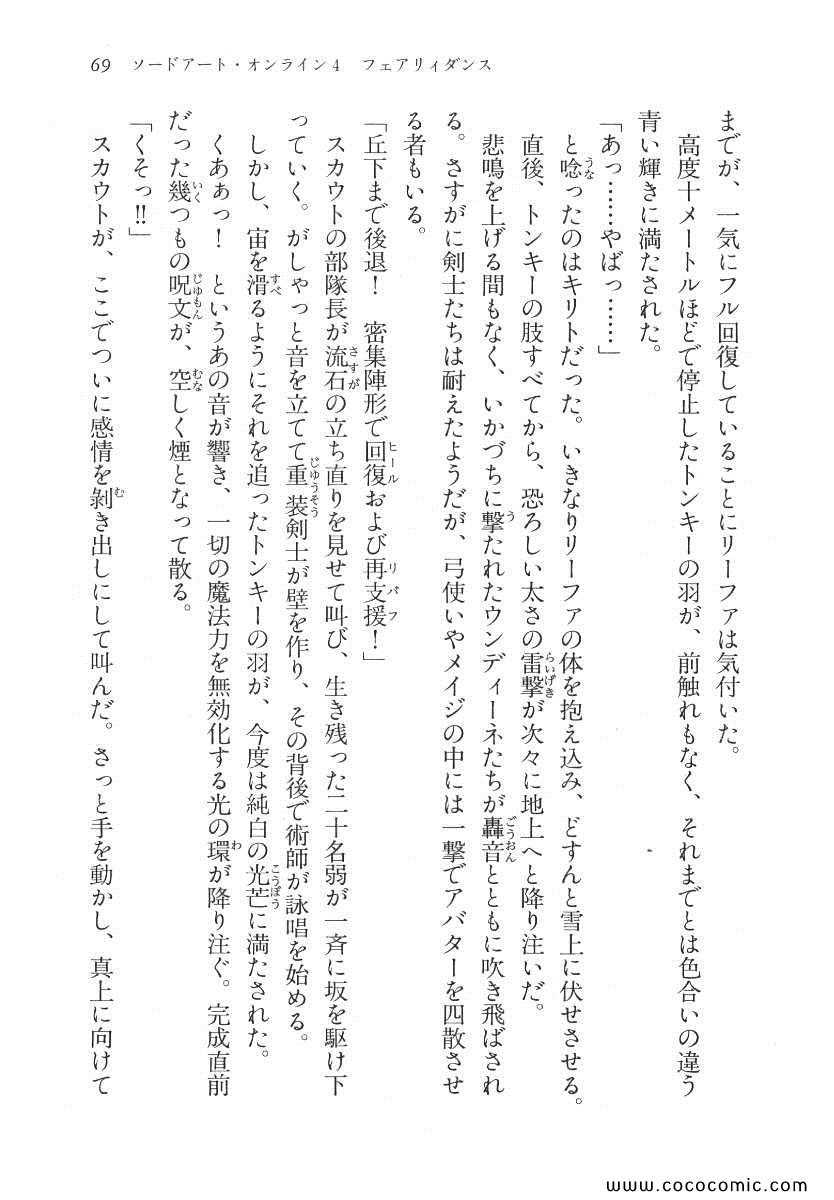 69　ソードアート・オンライン4　フェアリィダンス
までが、一気にフル回復していることにリーファは気付いた。
　高度十メートルほどで停止したトンキーの羽が、前触れもなく、それまでとは色合いの違う
青い輝きに満たされた。
「あっ……やばっ……」
　と唸ったのはキリトだった。いきなりリーファの体を抱え込み、どすんと雪上に伏せさせる。
　直後、トンキーの肢すべてから、恐ろしい太さの雷撃が次々に地上へと降り注いだ。
　悲鳴を上げる間もなく、いかづちに撃たれたウンディーネたちが轟音とともに吹き飛ばされ
る。さすがに剣士たちは耐えたようだが、弓使いやメイジの中には一撃でアバターを四散させ
る者もいる。
「丘下まで後退！　密集陣形で回復および再支援！」
　スカウトの部隊長が流石の立ち直りを見せて叫び、生き残った二十名弱が一斉に坂を駆け下
っていく。がしゃっと音を立てて重装剣士が壁を作り、その背後で術師が詠唱を始める。
　しかし、宙を滑るようにそれを追ったトンキーの羽が、今度は純白の光芒に満たされた。
　くあぁっ！　というあの音が響き、一切の魔法力を無効化する光の環が降り注ぐ。完成直前
だった幾つもの呪文が、空しく煙となって散る。
「くそっ!!」
　スカウトが、ここでついに感情を剝き出しにして叫んだ。さっと手を動かし、真上に向けて
http://www.cococomic.com/